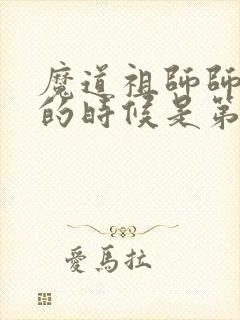 魔道祖師師
的時候是第
愛馬拉